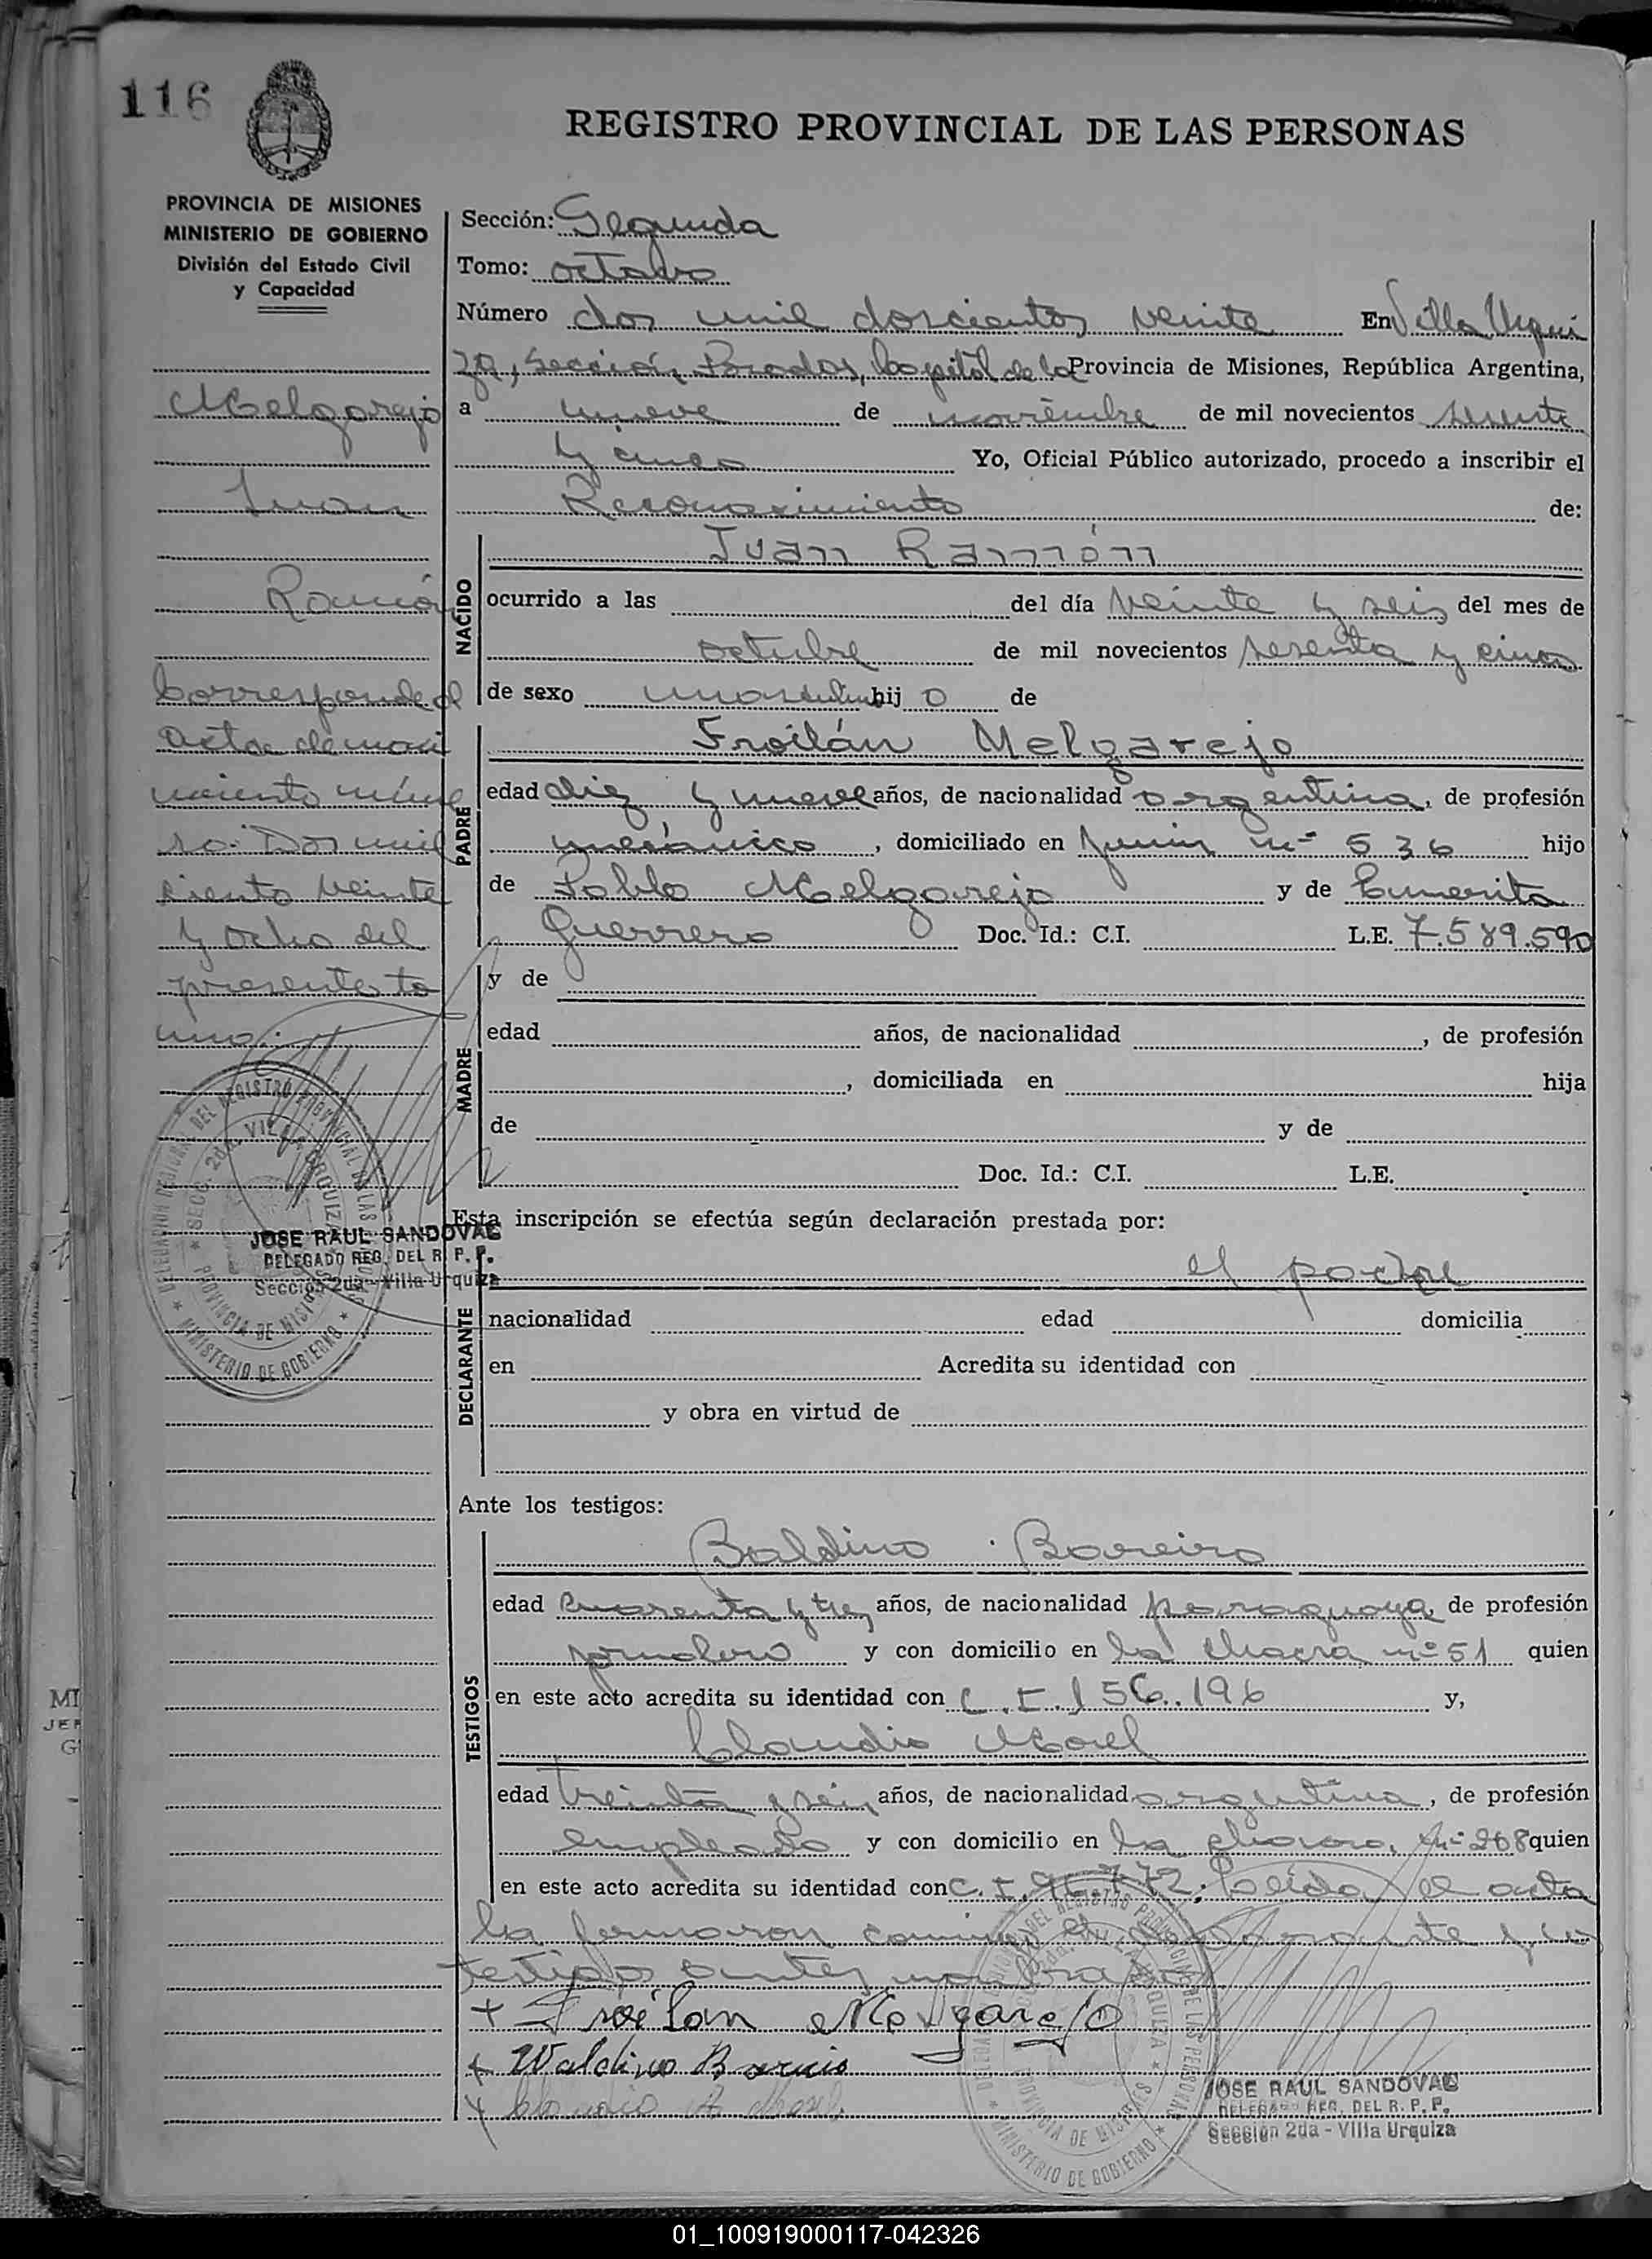 116
REGISTRO PROVINCIAL DE LAS PERSONAS
PROVINCIA DE MISIONES
MINISTERIO DE GOBIERNO
División del Estado Civil
y Capacidad
Melgarejo
Juan
Ramón
Corresponde al
acta de naci
miento núme
ro: Dos mil
ciento veinte
y ocho del
presente to
mo.
Sección: Segunda
Tomo: octavo
Número dos mil doscientos veinte En Villa Urqui
za, Sección Posadas, Capital de la Provincia de Misiones, República Argentina,
a nueve de noviembre de mil novecientos sesenta
y cinco Yo, Oficial Público autorizado, procedo a inscribir el
Reconocimiento de:
NACIDO
Juan Ramón
ocurrido a las del día veinte y seis del mes de
octubre de mil novecientos sesenta y cinco
de sexo masculino hij o de
PADRE
Froilán Melgarejo
edad diez y nueve años, de nacionalidad argentina, de profesión
mecánico, domiciliado en Junin nº 536 hijo
de Pablo Melgarejo y de Emerita
Guerrero Doc. Id.: C.I. L.E. 7.589.590
MADRE
y de
edad años, de nacionalidad , de profesión
, domiciliada en hija
de y de
Doc. Id.: C.I. L.E.
DELEGACION REGIONAL DEL REGISTRO PROVINCIAL DE LAS PERSONAS
SECC. 2da. VILLA URQUIZA
PROVINCIA DE MISIONES
MINISTERIO DE GOBIERNO
JOSE RAUL SANDOVAL
DELEGADO REG. DEL R. P. P.
Sección 2da - Villa Urquiza
Esta inscripción se efectúa según declaración prestada por:
DECLARANTE
el padre
nacionalidad edad domicilia
en Acredita su identidad con
y obra en virtud de
Ante los testigos:
TESTIGOS
Baldino Bareiro
edad cuarenta y tres años, de nacionalidad paraguaya de profesión
jornalero y con domicilio en la chacra nº 51 quien
en este acto acredita su identidad con C. I. 156.196 y,
Claudio Morel
edad treinta y seis años, de nacionalidad argentina, de profesión
empleado y con domicilio en la chacra, nº 268 quien
en este acto acredita su identidad con C. I. 96.772; Leída el acta
la firmaron conmigo el declarante y los
testigos antes nombrados
+ Froilan Melgarejo
+ Waldino Bareiro
+ Claudio A Morel
DELEGACION REGIONAL DEL REGISTRO PROVINCIAL DE LAS PERSONAS
SECC. 2da. VILLA URQUIZA
PROVINCIA DE MISIONES
MINISTERIO DE GOBIERNO
JOSE RAUL SANDOVAL
DELEGADO REG. DEL R. P. P.
Sección 2da - Villa Urquiza
01_100919000117-042326